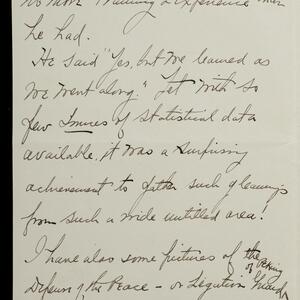 no more training & experience than
he had.
He said "Yes, but we learned as
we went along." Yet with so
few sources of statistical data
available, it was a surprising
achievement to gather such gleanings
from such a wide untilled area!
I have also some pictures of the
of Peking
Defense of the Peace - or Legation Guards